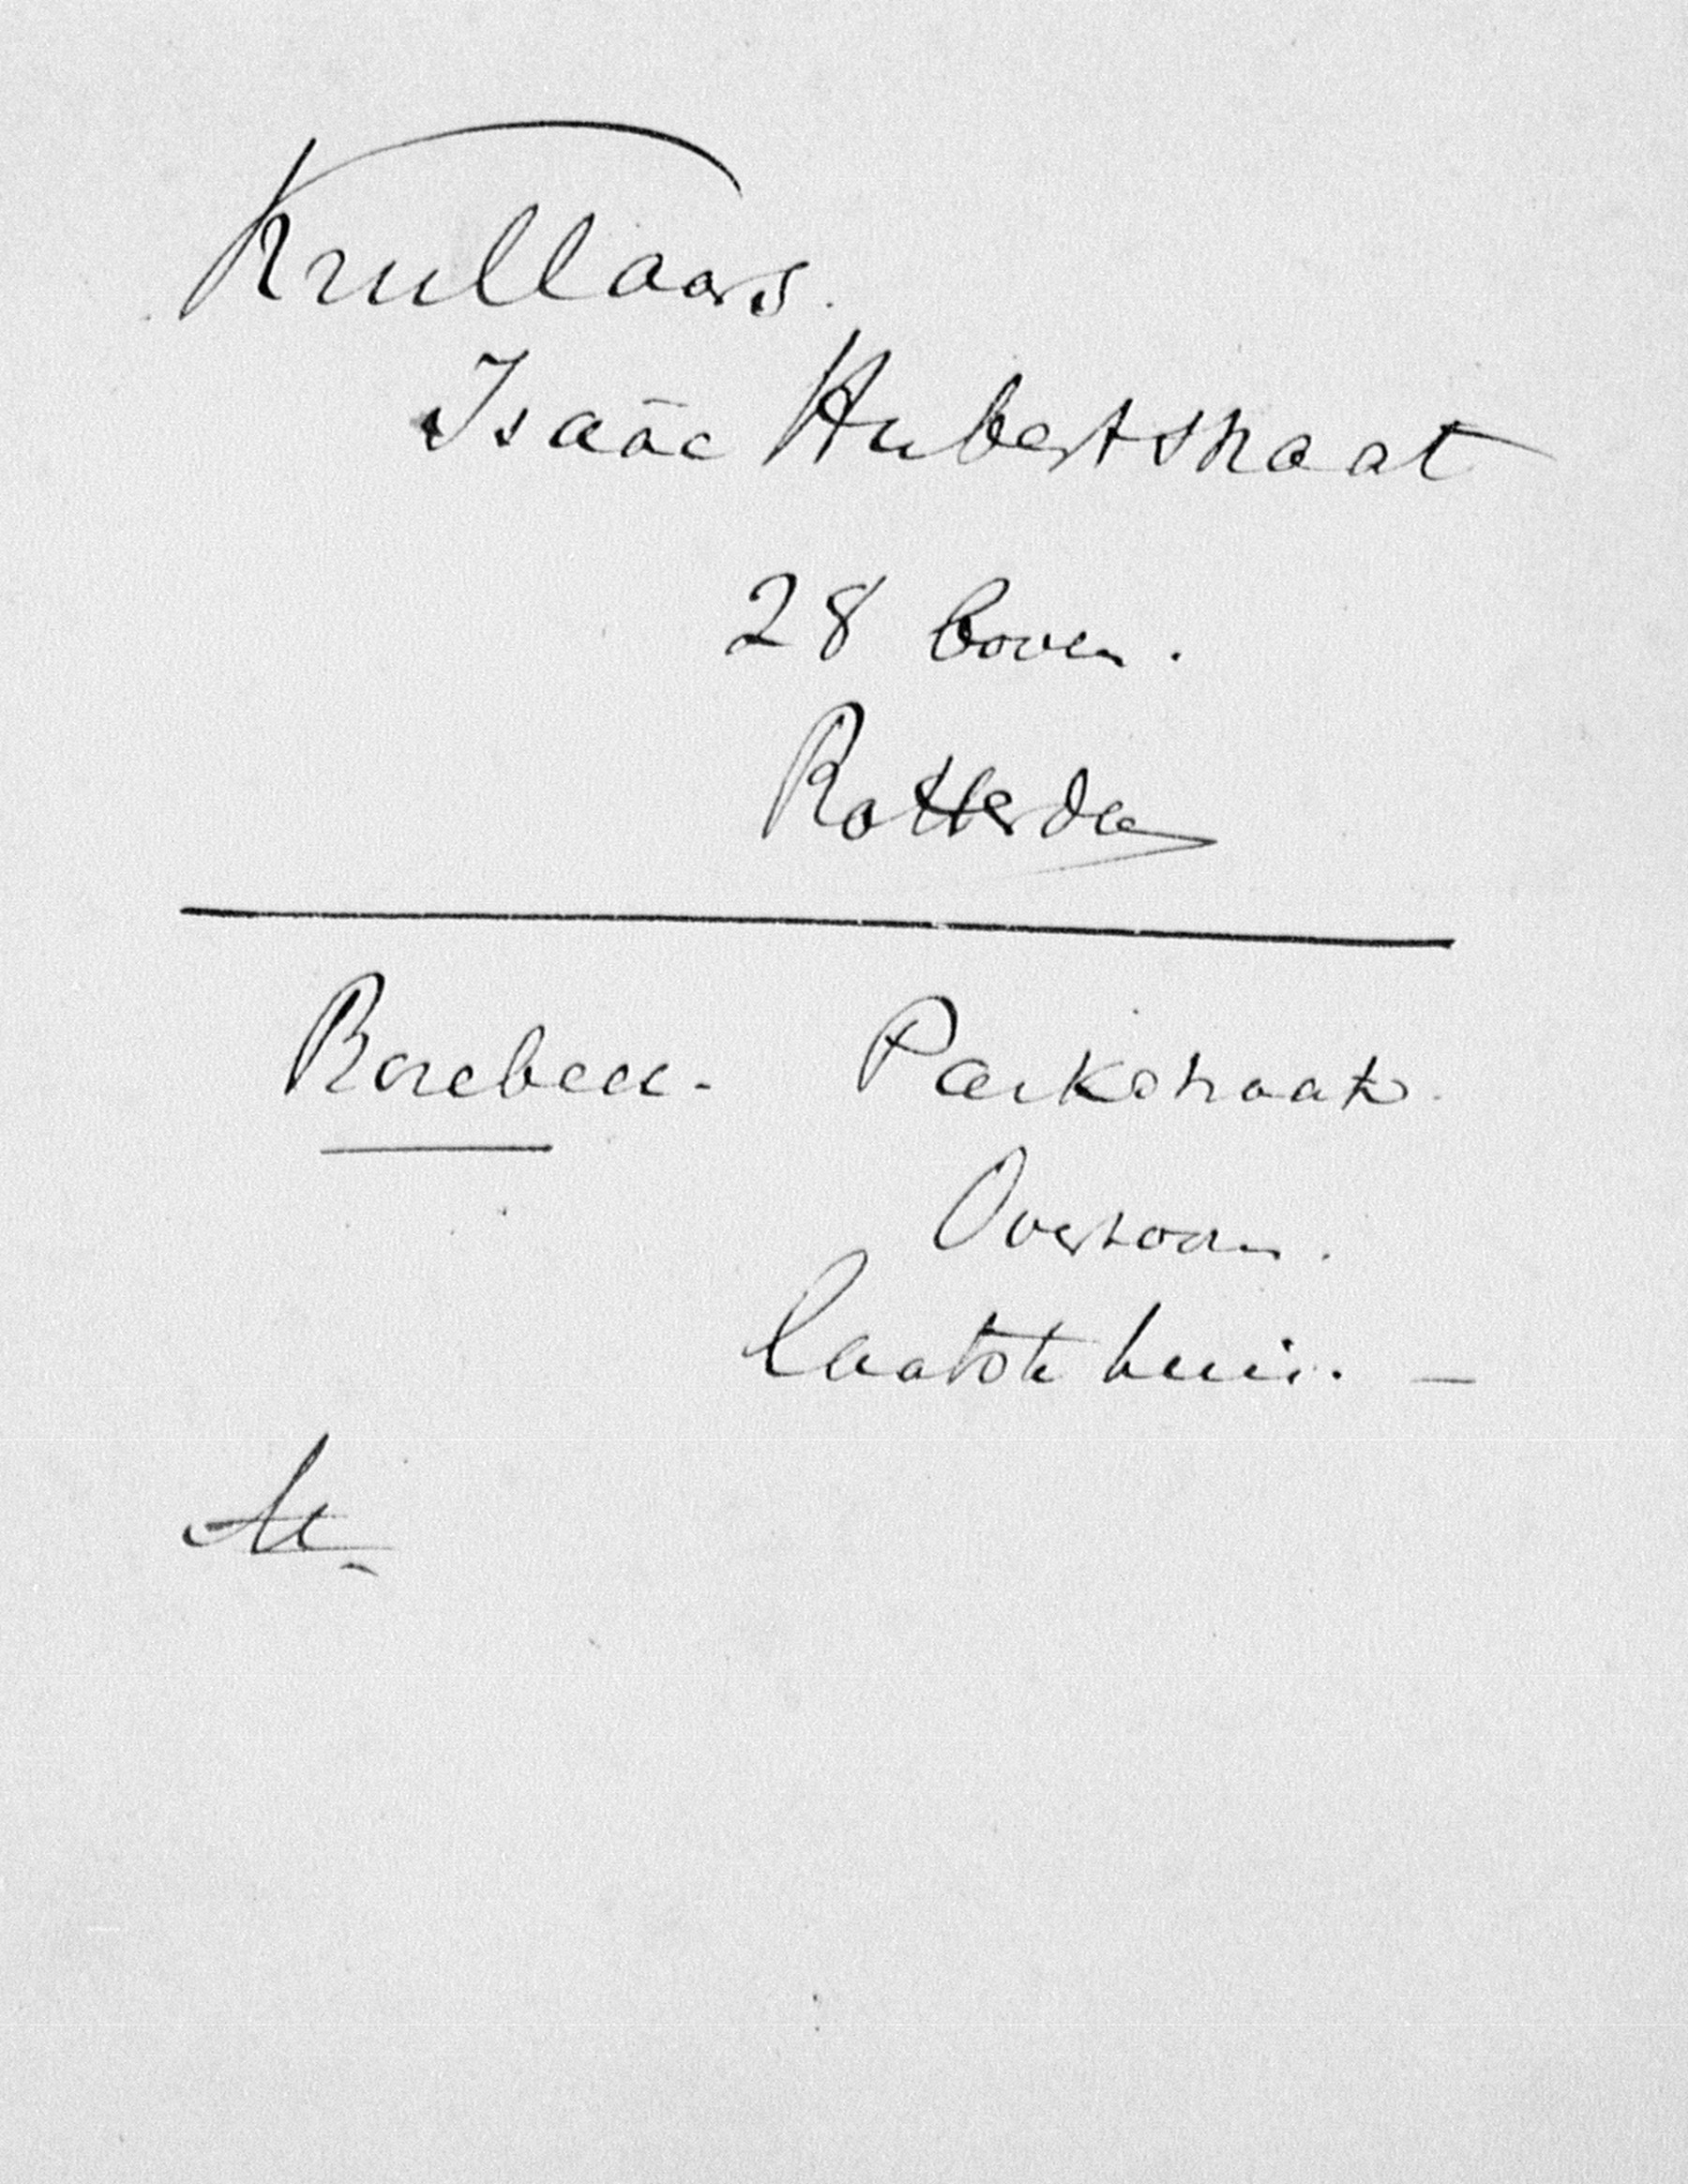 Krullaars.
Isaäc Hubertstraat
28 boven.
Rotterda
Parkstraat.
Overtoom.
laatste huis. —